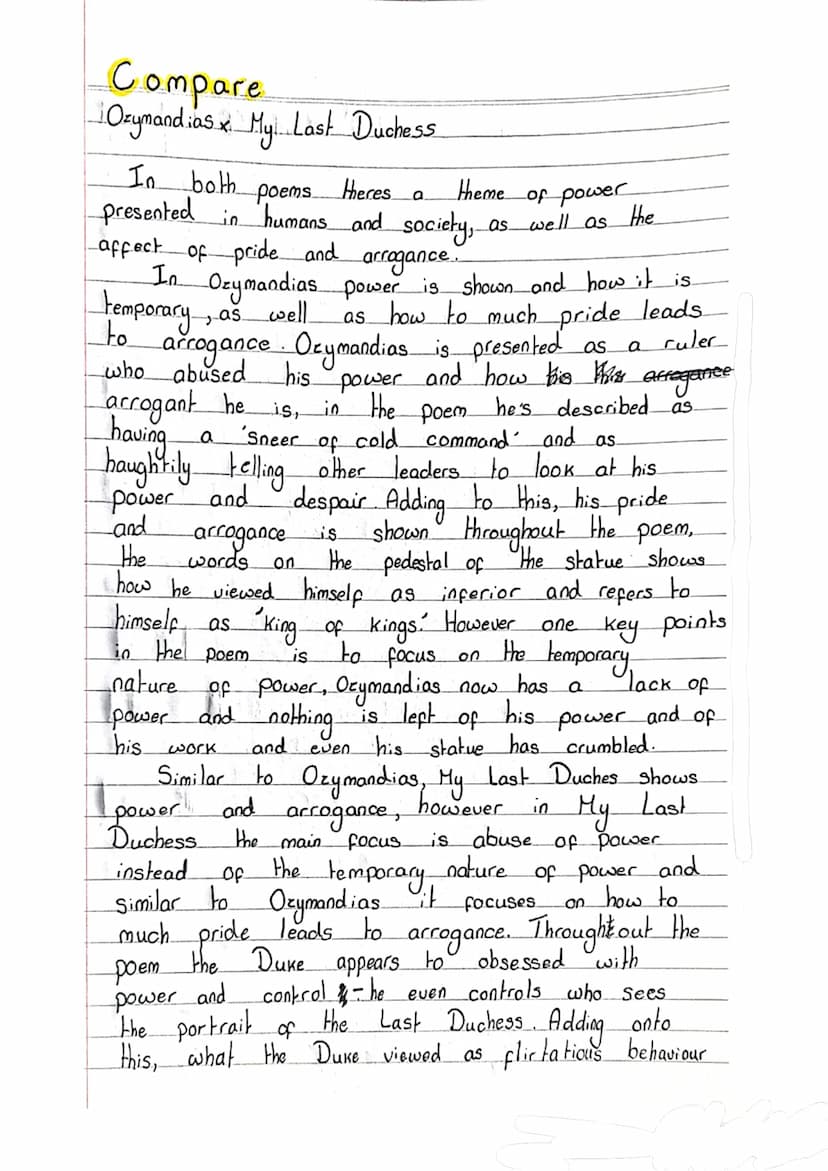 Compare
Ozymandias x My Last Duchess
In both poems theres a theme of power
presented in humans and society, as well as the
affect of pride and arrogance.
In Ozymandias power is shown and how it is
temporary, as well as how to much pride leads
to arrogance. Ozymandias is presented as a ruler
who abused his power and how his this arrogance
arrogant he is, in the poem he's described as
having a 'sneer of cold command' and as
haughtily telling other leaders to look at his
power and despair. Adding to this, his pride
and arrogance is shown throughout the poem,
the words on the pedestal of the statue shows
how he viewed himself as inferior and refers to
himself as 'king of kings.' However one key points
in the poem is to focus on the temporary
nature of power, Ozymandias now has a lack of
power and nothing is left of his power and of
his work and even his statue has crumbled.
Similar to Ozymandias, My Last Duches shows
power and arrogance, however in My Last
Duchess the main focus is abuse of power
instead of the temporary nature of power and
similar to Ozymandias it focuses on how to
much pride leads to arrogance. Throughtout the
poem the Duke appears to obsessed with
power and control - he even controls who sees
the portrait of the Last Duchess. Adding onto
this, what the Duke viewed as flirtatious behaviour